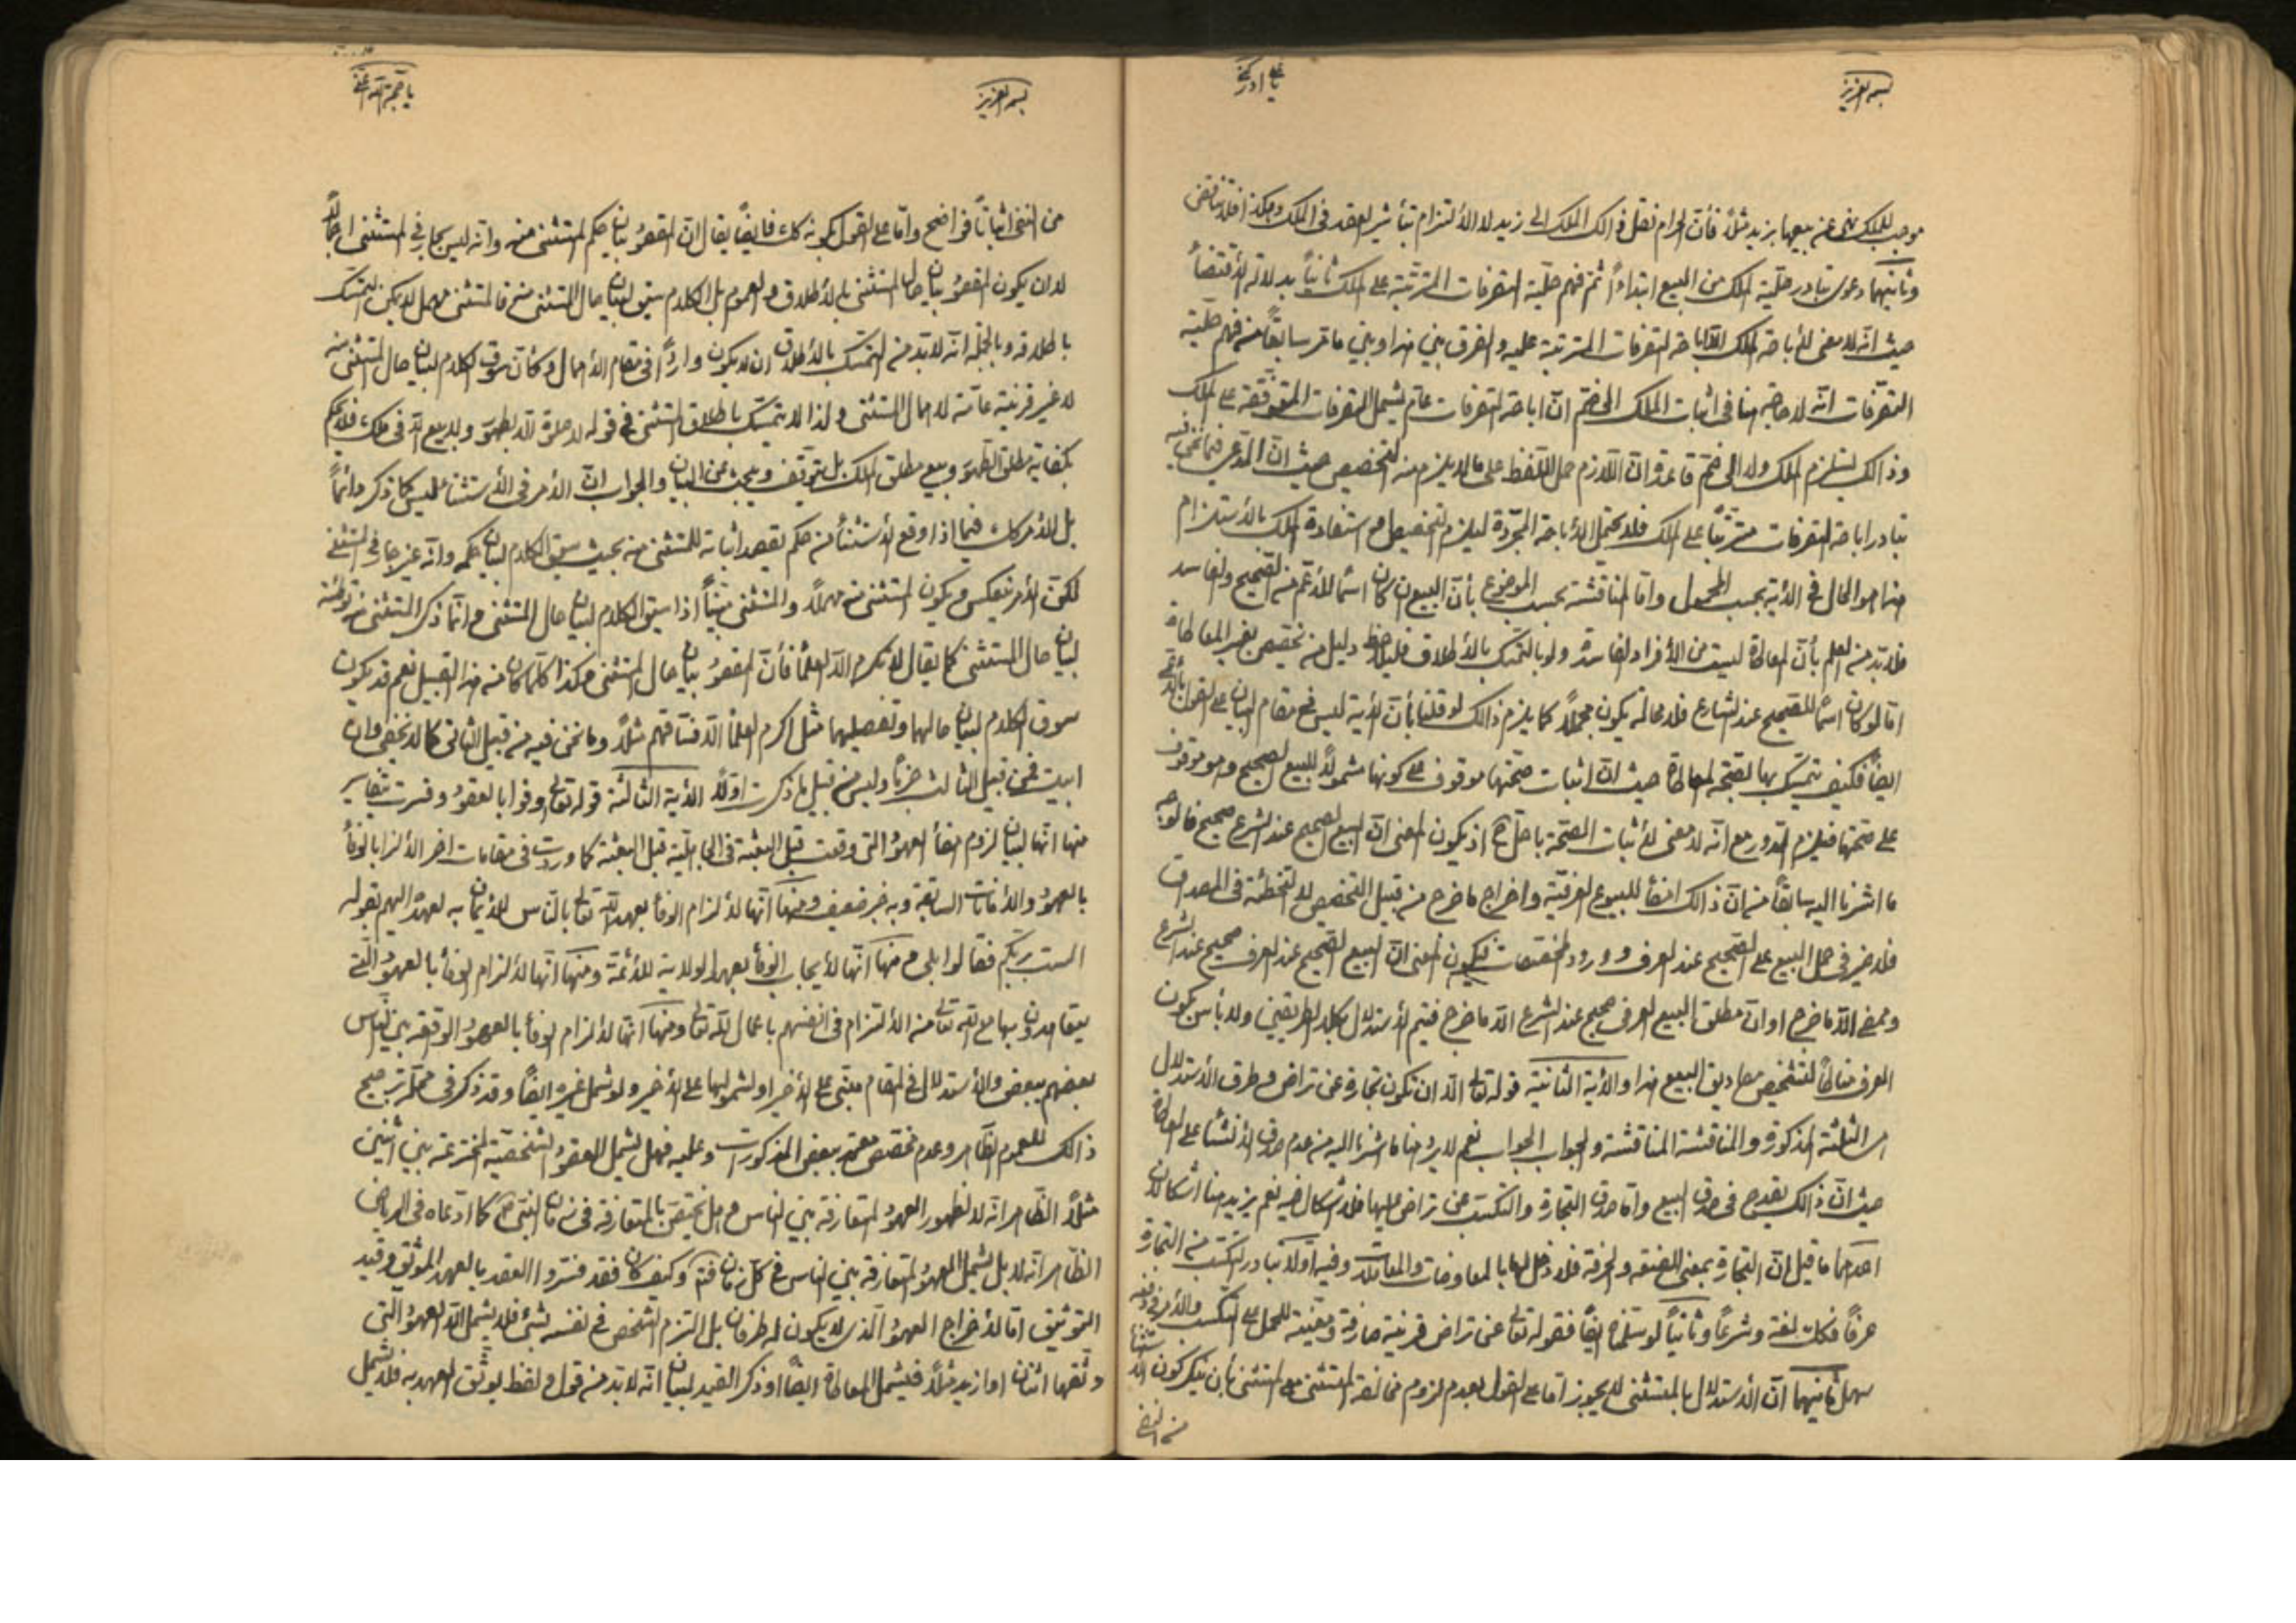 بسمه العزيز
يا علي ادركني
موجب للملك نهى عن بيعها بزيد مثلاً فأن الحرام نقل ذالك الملك الى زيد لا الالتزام بتأثير العقد فى الملك وهكذا فلا تناقض
وثانيهما دعوى تبادر حلّية الملك من البيع ابتداءً ثم فهم حلّية التصرفات المترتبة على الملك ثانياً بدلالة الأقتضاء
حيث انّه لا معنى لأباحة الملك الّا اباحة التصرفات المترتبة عليه والفرق بين هذا وبين ما مرّ سابقاً من فهم حلّية
التصرّفات انّه لا حاجة هنا فى اثبات الملك الى ضمّ انّ اباحة التصرفات عام يشمل التصرفات المتوقّفة على الملك
وذالك يستلزم الملك ولا الى ضمّ قاعدة انّ اللازم حمل اللفظ على ما لا يلزم منه التخصيص حيث انّ المدّعى فيما نحن فيه
تبادر اباحة التصرفات مترتباً على الملك فلا يحتمل الأباحة المجرّدة ليلزم التخصيص و استفادة الملك بالأستلزام
هذا هو الحال فى الأية بحسب المحمول وامّا المناقشة بحسب الموضوع بأنّ البيع ان كان اسماً للأعم من الصحيح والفاسد
فلا بدّ من العلم بأنّ المعاطاة ليست من الأفراد الفاسدة ولو بالتمسّك بالأطلاق فليلاحظ دليل من تخصيص بغير المعاطاة
امّا لو كان اسماً للصحيح عند الشارع فلا محالة يكون مجملاً كما يلزم ذالك لو قلنا بأنّ الأية ليس فى مقام البيان على القول بالأعم
ايضاً فكيف يتمسّك بها لصحّة المعاطاة حيث انّ اثبات صحّتها موقوف على كونها مشمولاً للبيع الصحيح وهو موقوف
على صحّتها فيلزم الدور مع انّه لا معنى لأثبات الصحّة باحلّ اذ يكون المعنى انّ البيع الصحيح عند الشرع صحيح فالوجه
ما اشرنا اليه سابقاً من انّ ذالك امضأ للبيوع العرفيّة واخراج ما خرج من قبيل التخصيص لا التخطئة فى المصداق
فلا ضير فى حمل البيع على الصحيح عند العرف و ورود المخصّصات فيكون المعنى انّ البيع الصحيح عند العرف صحيح عند الشرع
وممضى الّا ما خرج او انّ مطلق البيع العرفى صحيح عند الشرع الّا ما خرج فيتم الأستدلال بكلا الطريقين ولا بأس بكون
العرف مناطاً لتشخيص مصاديق البيع هذا والأية الثانية قوله تعالى الّا ان تكون تجارة عن تراض وطرق الأستدلال
هى الثلثة المذكورة والمناقشة المناقشة والجواب الجواب نعم لا يرد هنا ما اشرنا اليه من عدم صدق الأنشأ على المعاطاة
حيث انّ ذالك يقدح فى صدق البيع وامّا صدق التجارة والتكسّب عن تراض عليها فلا اشكال فيه نعم يزيد هنا اشكالان
احدهما ما قيل انّ التجارة بمعنى الصنعة والحرفة فلا دخل لها بالمعاوضات والمعاملات وفيه اوّلاً تبادر التكسّب من التجارة
عرفاً فكك لغة وشرعاً وثانياً لو سلّم ايضاً فقوله تعالى عن تراض قرينة صارفة ومعيّنة للحمل على التكسّب والأمر فى دفعه
سهل ثانيهما انّ الأستدلال بالمستثنى لا يجوز امّا على القول بعدم لزوم مخالفة المستثنى مع المستثنى بأن ينكر كون الأستثنأ
من النفى
بسمه العزيز
يا حجة الله اغثنى
من النفى اثباتاً فواضح وامّا على القول بكونه كك فايضاً يقال انّ المقصود بيان حكم المستثنى منه وانّه ليس بجار فى المستثنى اجمالاً
لا ان يكون المقصود بيان حال المستثنى بالأطلاق والعموم بل الكلام سيق لبيان حال المستثنى منه فالمستثنى مهمل لا يمكن التمسّك
باطلاقه وبالجملة انّه لا بدّ من التمسّك بالأطلاق ان لا يكون وارداً فى مقام الأهمال وكأنّ سوق الكلام لبيان حال المستثنى منه
لا غير قرينة عامّة لأهمال المستثنى ولذا لا يتمسّك باطلاق المستثنى فى قوله لا صلوة الّا بطهور ولا بيع الّا فى ملك فلا يحكم
بكفاية مطلق الطهور وبيع مطلق الملك بل يتوقّف ويبحث عن البيان والجواب انّ الأمر فى الأستثنأ ليس كما ذكر دائماً
بل الأمر كك فيما اذا وقع الأستثنأ من حكم يقصد اثباته للمستثنى منه بحيث سيق الكلام لبيان حكمه وانّه غير جار فى المستثنى
لكنّ الأمر ينعكس ويكون المستثنى منه مهملاً والمستثنى مبيّناً اذا سيق الكلام لبيان حال المستثنى وانّما ذكر المستثنى منه توطئة
لبيان حال المستثنى كما يقال لا تكرم الّا العلمأ فأنّ المقصود بيان حال المستثنى وهكذا كلّما كان من هذا القبيل نعم قد يكون
سوق الكلام لبيان حالهما وتفصيلهما مثل اكرم العلمأ الّا فسّاقهم مثلاً وما نحن فيه من قبيل الثانى كما لا يخفى وان
ابيت فمن قبيل الثالث جزماً وليس من قبيل ما ذكرت اوّلاً الأية الثالثة قوله تعالى اوفوا بالعقود وفسرت بتفاسير
منها انّها لبيان لزوم امضأ العهود التى وقعت قبل البعثة فى الجاهليّة قبل البعثة كما وردت فى مقامات اخر الألزام بالوفأ
بالعهود والأمانات السابقة وبه خبر ضعيف ومنها انّها لألزام الوفأ بعهد الله تعالى بالناس للأيمان به لعهده اليهم بقوله
الست بربّكم فقالوا بلى ومنها انّها لأيجاب الوفأ بعهد الولاية للأئمّة ومنها انّها لألزام الوفأ بالعهود الّتى
يتعاهدون بها مع الله تعالى من الألتزام فى انفسهم باعمال لله تعالى ومنها انّها لألزام الوفأ بالعهود الواقعة بين الناس
بعضهم ببعض والأستدلال فى المقام مبتنى على الأخير او لشمولها على الأخير ولو شمل غيره ايضاً وقد ذكر فى محلّه ترجيح
ذالك للعموم الظاهر وعدم مخصّص معتمد ببعض المذكورات وعليه فهل يشمل العقود الشخصيّة المخترعة بين اثنين
مثلاً الظاهر انّه لا لظهور العهود المتعارفة بين الناس وهل يختصّ بالمتعارفة فى زمان النبى ص كما ادّعاه فى الرياض
الظاهر انّه لا بل يشمل العهود المتعارفة بين الناس فى كلّ زمان فتم وكيف كان فقد فسّروا العقد بالعهد الموثّق وقيد
التوثيق امّا لأخراج العهود الّذى لا يكون له طرفان بل التزم الشخص فى نفسه بشئ فلا يشمل الّا العهود الّتى
وثّقها اثنان او ازيد مثلاً فيشمل المعاطاة ايضاً او ذكر القيد لبيان انّه لا بدّ من قول ولفظ يوثّق العهد به فلا يشمل